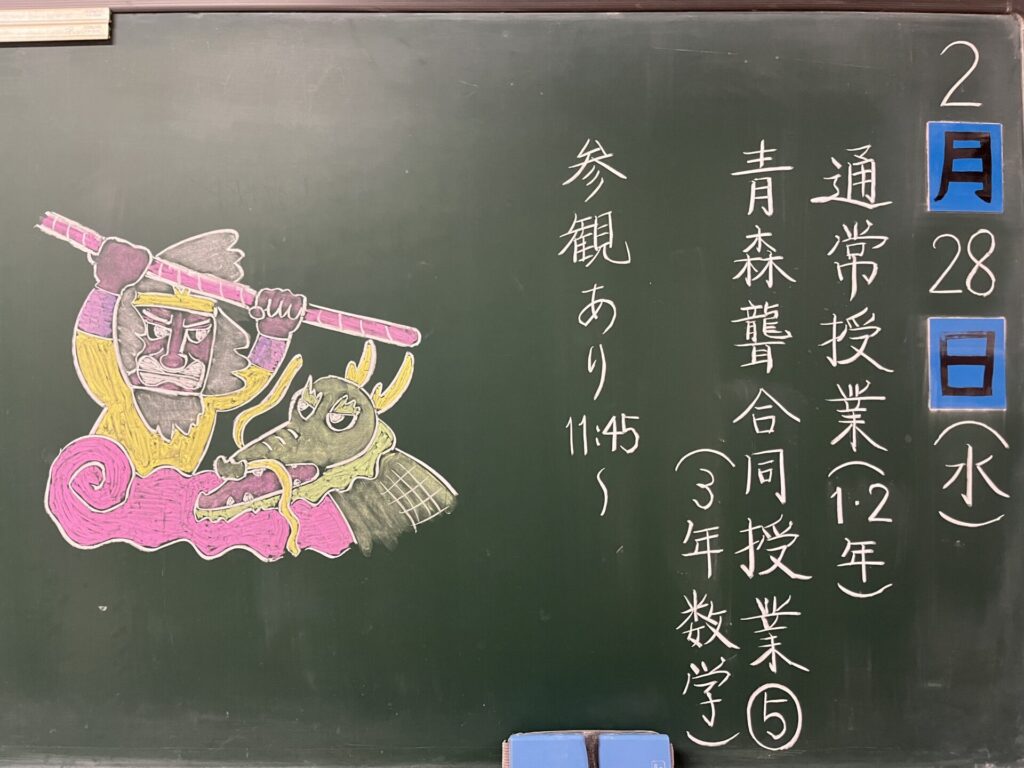 2月28日(水)
通常授業(1・2年)
青森聾合同授業⑤
(3年数学)
参観あり 11:45〜